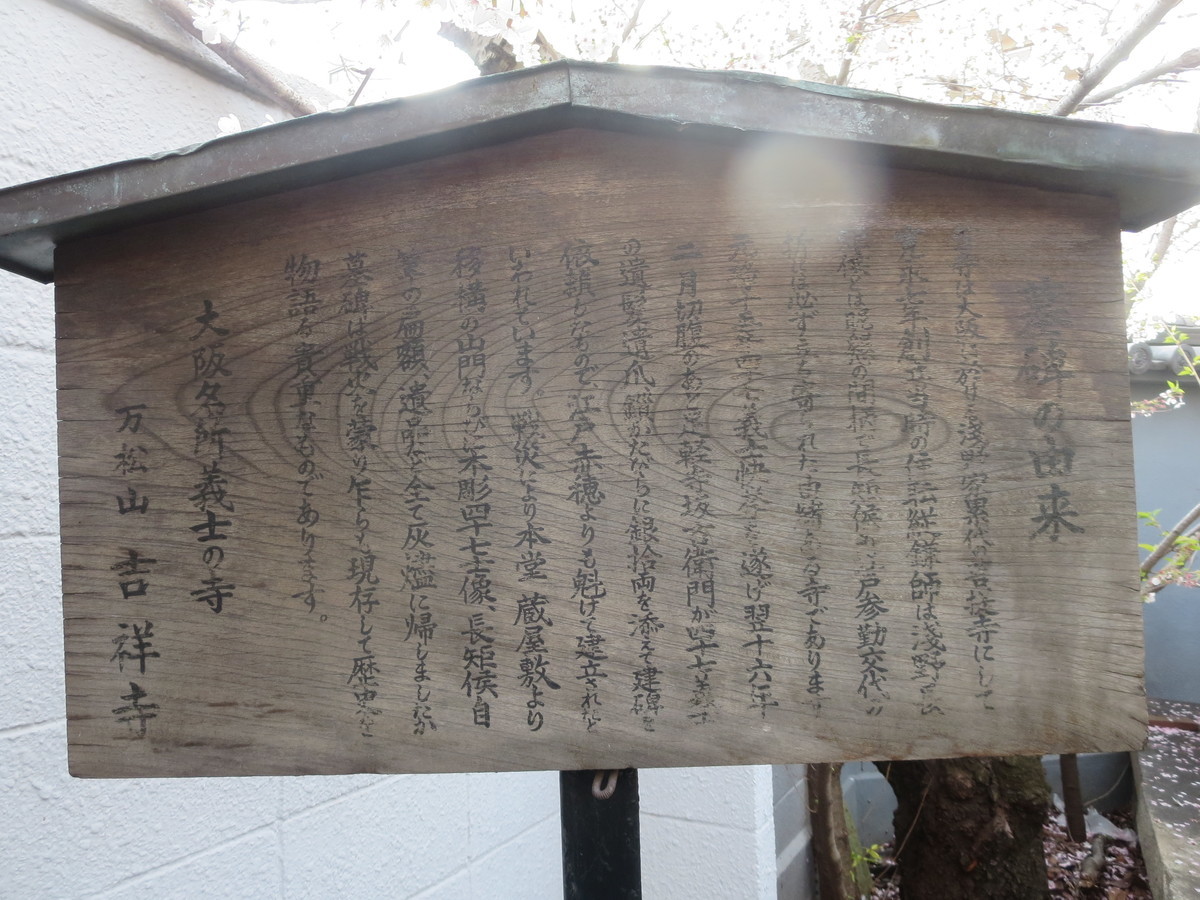 墓碑の由来
当寺は大阪に於ける浅野家累代の菩提寺にして
寛永七年創立当時の住職 縁 師は浅野
とは の間柄で長矩侯 江戸参勤交代の
折には必ず立ち寄られた由緒ある寺であります
元禄十五年 四十七義士快挙を遂げ翌十六年
二月切腹のあと足軽寺坂吉右衛門が四十七義士
の遺髪遺爪鎖かたびらに銀拾両を添えて建碑を
依頼したもので、江戸赤穂よりも魁けて建立されたと
いわれています。戦災により本堂 蔵屋敷より
移構の山門ならびに木彫四十七士像、長矩侯自
筆の扁額、遺品など全て灰燼に帰しましたが
墓碑は戦火を蒙り乍らも現存して歴史を
物語る貴重なものであります。
大阪名所義士の寺
万松山 吉祥寺